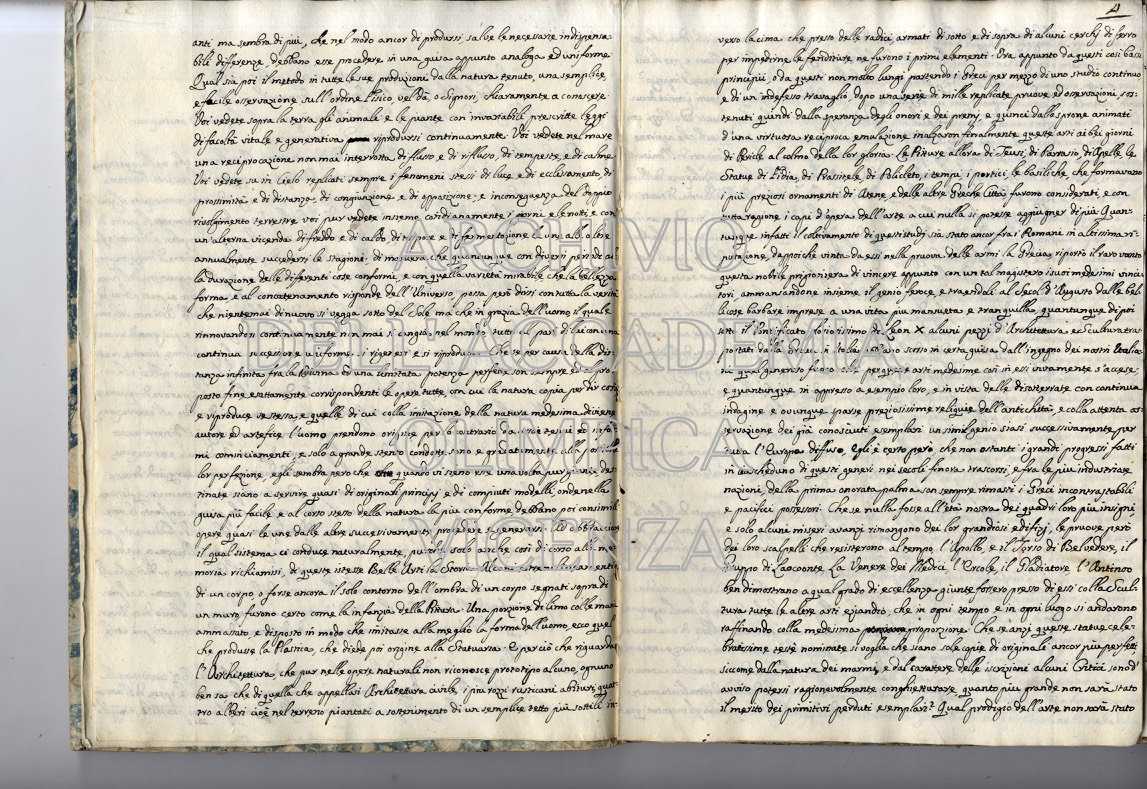 anti ma sembra di più, che nel modo ancor di prodursi, salve le necessarie indispensa=
bili differenze debbano esse procedere in una guisa appunto analoga ed uniforme
Qual sia poi il metodo in tutte le sue produzioni dalla natura tenuto, una semplice
e facile osservazione sull'ordine Fisico vel dà, o Signori, chiaramente a conoscere
Voi vedete sopra la terra gli animali e le piante con invariabili prescritte leggi
di facoltà vitale e generativa riprodursi continuamente. Voi vedete nel mare
una reciprocazione non mai interrotta di flusso e di riflusso, di tempeste, e di calme
Voi vedete su in Cielo replicati sempre i fenomeni stessi di luce e di ecclissamento, di
prossimità e di distanza, di congiunzione e di opposizione e in conseguenza del doppio
rivolgimento terrestre voi pur vedete insieme cotidianamente i giorni e le notti e con
un'alterna vicenda di freddo e di caldo, di riposo e di fermentazione
annualmente succedersi le stagioni: di maniera che quantunque con diversi periodi
la durazione delle differenti cose conformi, e con quella varietà mirabile che la bellezza
forma, e al concatenamento risponde dell'Universo, possa però dirsi con tutta la verità
che nientemai di nuovo si vegga sotto del Sole ma che in grazia dell'uomo, il quale
rinnovandosi continuamente non mai si cangia, nel mondo tutto al par di lui con una
continua successione uniforme si rigeneri e si riproduca. Che se per causa della dis=
tanza infinita fra la Divina ed una limitata potenza perfette son sempre ed al pro=
posto fine esattamente corrispondenti le opere tutte, con cui la natura copia per dir così
e riproduce se stessa, e quelle di cui colla imitazione della natura medesima diviene
autore ed artefice l'uomo prendono origine per lo contrario da
mi cominciamenti, e solo a grande stento condotte sono e gradatamente alla possibile
lor perfezione, egli sembra però che quando vi sieno esse una volta pur giunte des=
tinate siano a servire quasi di originali principj e di compiuti modelli, onde nella
guisa più facile e al corso stesso della natura la più conforme debbano poi consimili
opere quasi le une dalle altre successivamente procedere e generarsi. Ad abbracciare
il qual sistema ci conduce naturalmente, purché solo anche così di corso alla me=
moria richiamisi, di queste istesse Belle Arti la Storia.
di un corpo, o forse ancora il solo contorno dell'ombra di un corpo segnati sopra di
un muro, furono certo come la infanzia della Pittura. Una porzione di limo colle mani
ammassato, e disposto in modo che imitasse alla meglio la forma dell'uomo, ecco quel
che produsse la Plastica, che diede poi origine alla Statuaria. E perciò che riguarda
l'Architettura, che pur nelle opere naturali non riconosce prototipo alcuno, ognuno
ben sa che di quella, che appellasi Architettura civile, i più rozzi rusticani abituri, quat=
tro alberi cioè nel terreno piantati a sostenimento di un semplice tetto più sottili in=
4
verso la cima che presso delle radici, armati di sotto e di sopra di alcuni cerchj di ferro
per impedirne le fenditure ne furono i primi elementi. Ora appunto da questi così bassi
principii, o da questi non molto lungi partendo i Greci per mezzo di uno studio continuo
e di un indefesso travaglio, dopo una serie di mille replicate pruove ed osservazioni, sos=
tenuti quindi dalla speranza degli onori e dei premj, e quinci dallo sprone animati
d'una virtuosa reciproca emulazione inalzaron finalmente queste arti ai bei giorni
di Pericle al colmo della lor gloria. Le Pitture allora di Zeusi, di Parrasio, di Apelle, le
Statue di Fidia, di Pasitele, di Policleto, i tempj, i portici, le basiliche, che formavano
i più preziosi ornamenti di Atene, e delle altre Greche Città furono considerati, e con
tutta ragione i capi d'opera dell'arte a cui nulla si potesse aggiugner di più. Quan=
tunque infatti il coltivamento di questi studj sia stato ancor fra i Romani in altissima ri=
putazione, dappoichè vinta da essi nella pruova delle armi la Grecia, riportò il raro vanto
questa nobile prigioniera di vincere appunto con un tal magistero i suoi medesimi vinci=
tori, ammansandone insieme il genio feroce, e traendoli al Secol d'Augusto dalle bel=
licose barbare imprese a una vita più mansueta, e tranquilla, quantunque di poi
sotto il Pontificato gloriosissimo di Leon X alcuni pezzi d'Architettura, e Scultura tras=
portati dalla Grecia in Italia
e quantunque in appresso a esempio loro, e in vista delle disotterrate con continua
indagine e ovunque sparse preziosissime reliquie dell'antichità, e colla attenta os=
servazione dei già conosciuti esemplari un simil genio siasi successivamente per
tutta l'Europa diffuso, egli è certo però, che non ostanti i grandi progressi fatti
in ciascheduno di questi generi nei secoli finora trascorsi, e fra le più industriose
nazioni, della prima onorata palma son sempre rimasti i Greci incontrastabili
e pacifici possessori. Che se nulla fosse all'età nostra dei quadri loro più insigni,
e solo alcuni miseri avanzi rimangono dei lor grandiosi edifizj, le pruove però
dei loro scalpelli che resisterono al tempo, l'Apollo, e il Torso di Belvedere, il
Gruppo di Laocoonte, La Venere dei Medici, l'Ercole, il Gladiatore, l'Antinoo
ben dimostrano a qual grado di eccellenza giunte fossero presso di essi colla Scul=
tura tutte le altre arti eziandio, che in ogni tempo e in ogni luogo si andarono
raffinando colla medesima proporzione. Che se anzi queste statue cele=
bratissime testè nominate si voglia che siano sole copie di originali ancor più perfetti
siccome dalla natura dei marmi, e dal carattere delle iscrizioni alcuni Critici sono d'
avviso potersi ragionevolmente conghietturare, quanto più grande non sarà stato
il merito dei primitivi perduti esemplari? Qual prodigio dell'arte non sarà stato
ARCHIVIO
DELL'ACCADEMIA
OLIMPICA
VICENZA